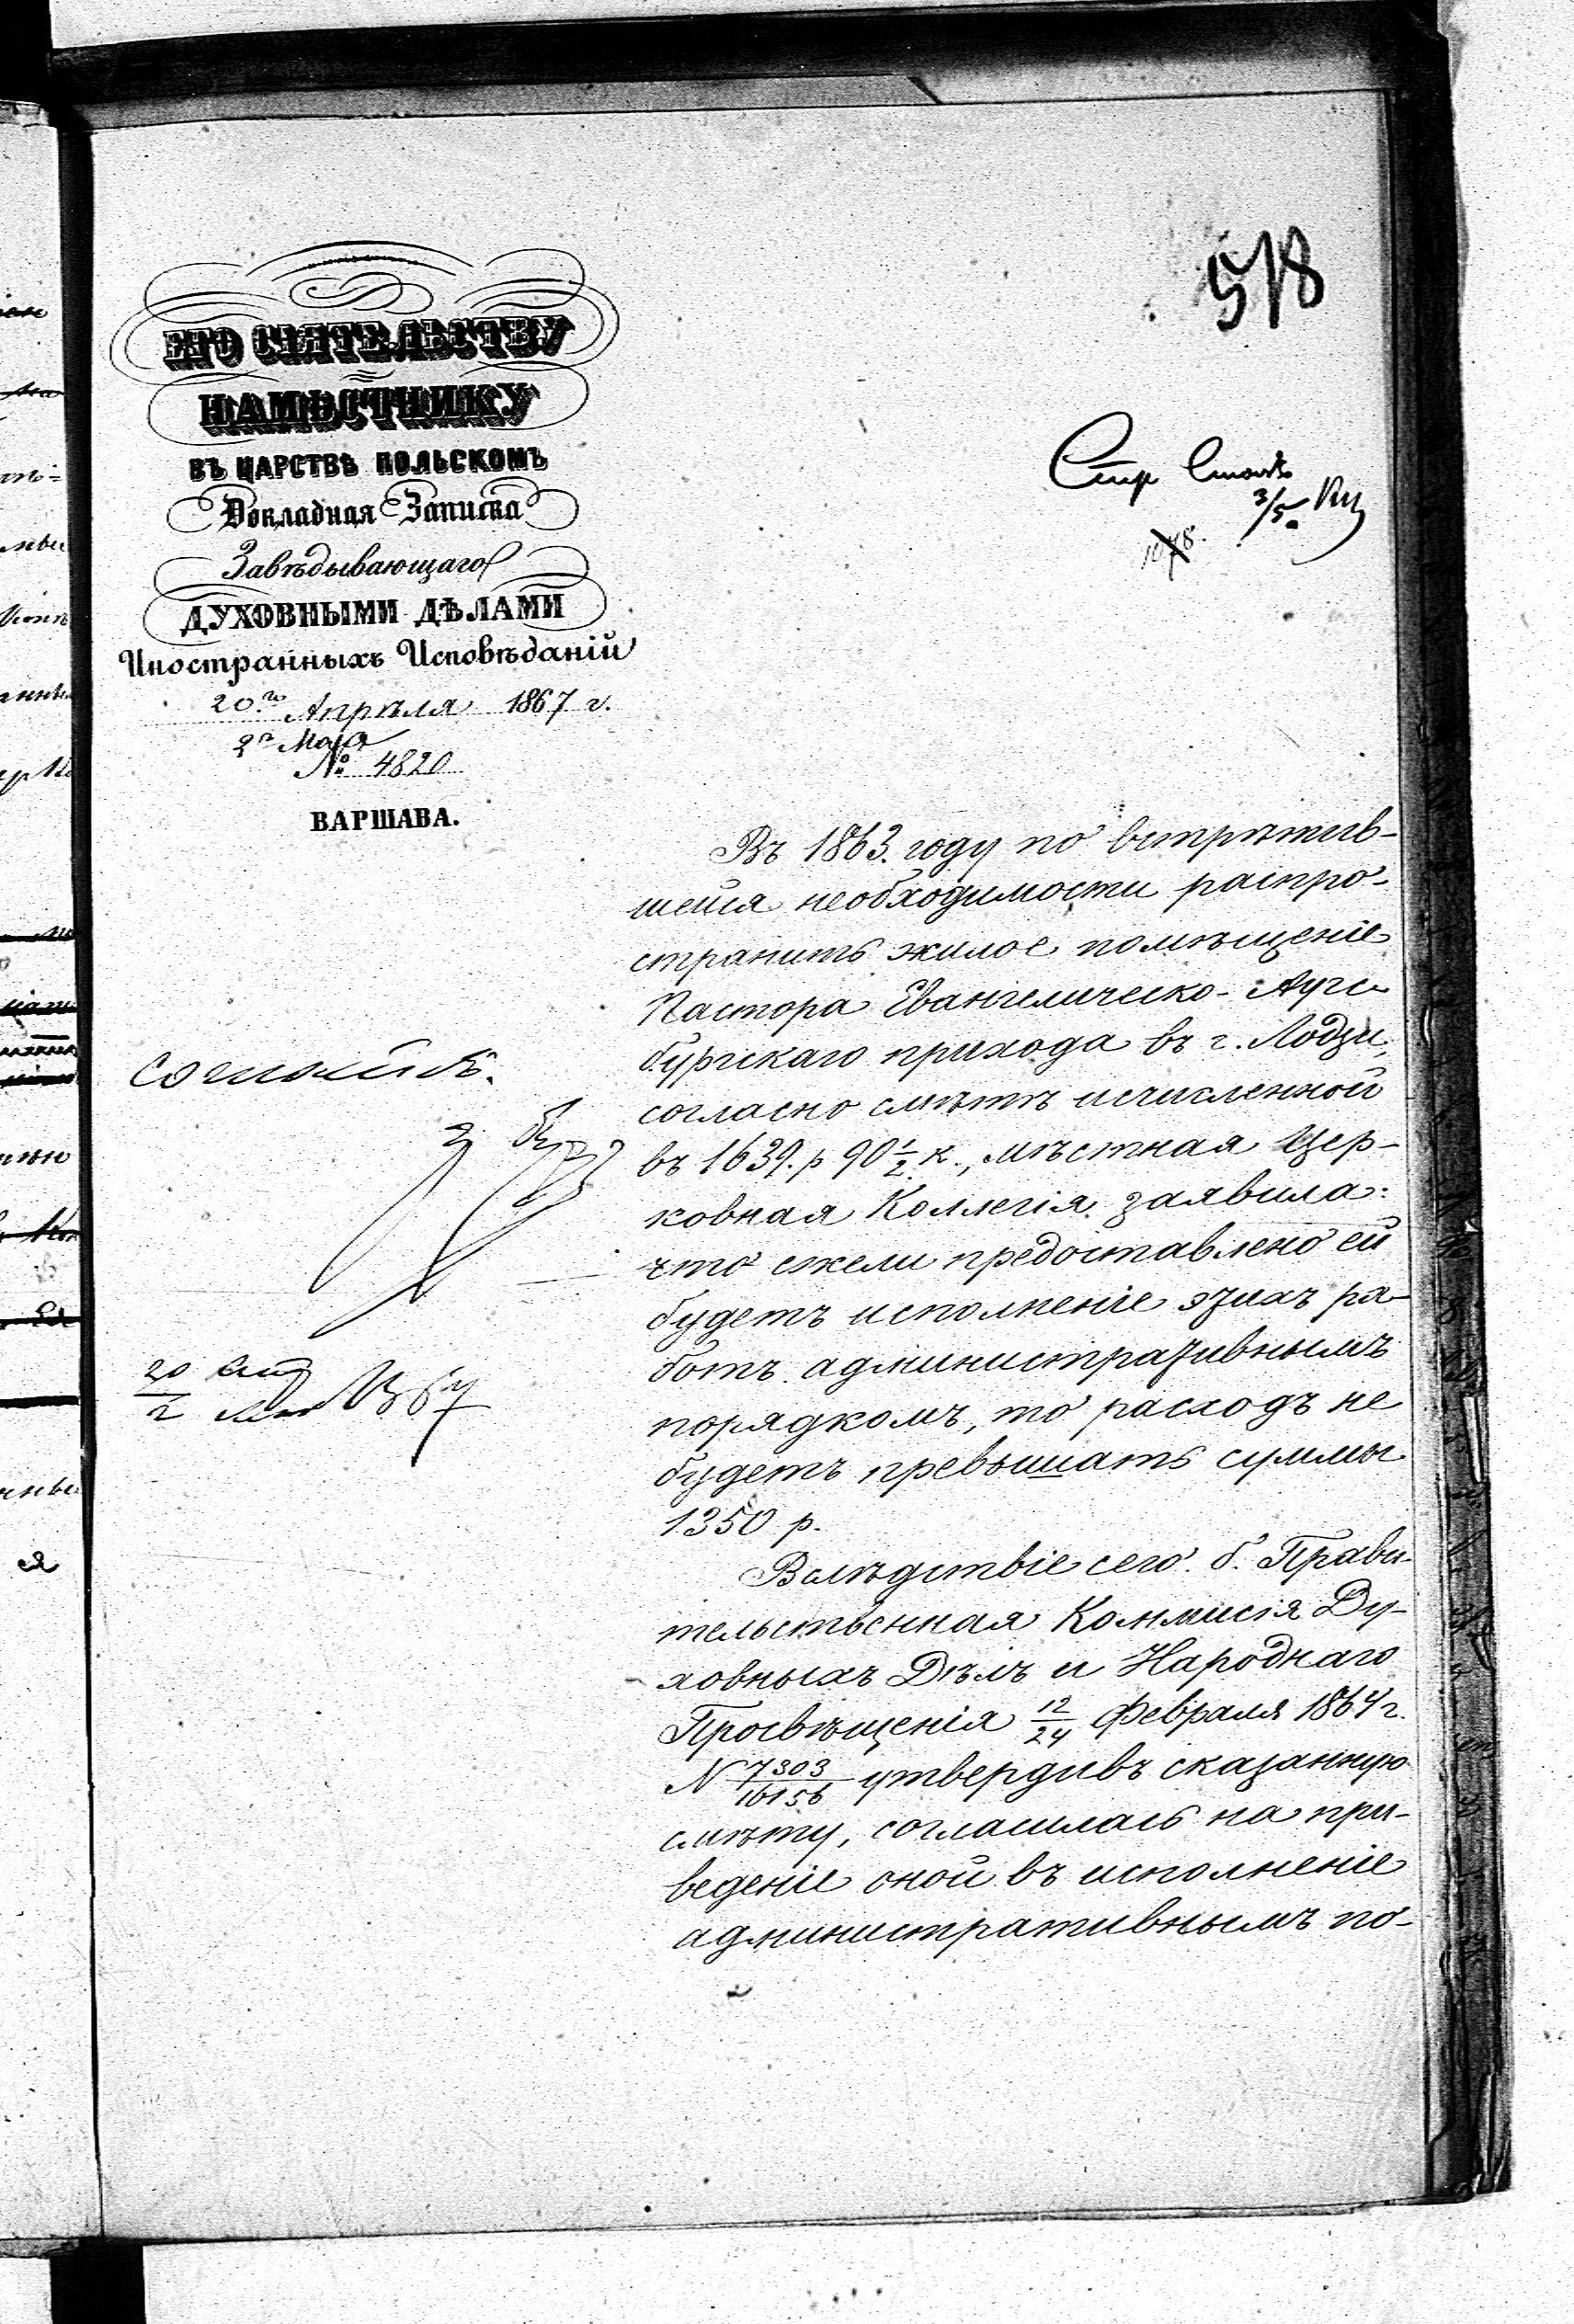 578
ЕГО СІЯТЕЛЬСТВУ
НАМѢСТНИКУ
ВЪ ЦАРСТВѢ ПОЛЬСКОМЪ
Докладная Записка
Завѣдывающаго
ДУХОВНЫМИ ДѢЛАМИ
Иностранныхъ Исповѣданій
20го Апрѣля 1867 г.
2го Мая
№ 4820
ВАРШАВА.
3/5
1078.
Въ 1863. году по встрѣтив-
шейся необходимости распро-
странить жилое помѣщеніе
Пастора Евангелическо-Аугс-
бургскаго прихода въ г. Лодзи,
согласно смѣтѣ исчисленной
въ 1639. р 90 1/2 к., мѣстная Цер-
ковная Коллегія заявила:
что ежели предоставлено ей
будетъ исполненіе этихъ ра-
ботъ административнымъ
порядкомъ, то расходъ не
будетъ превышать суммы
1350 р.
Вслѣдствіе сего б. Прави-
тельственная Коммисія Ду-
ховныхъ Дѣлъ и Народнаго
Просвѣщенія 12/24 Февраля 1864 г.
N 7303/16156 утвердивъ сказанную
смѣту, согласилась на при-
веденіе оной въ исполненіе
административнымъ по-
Согласенъ.
20
2 67